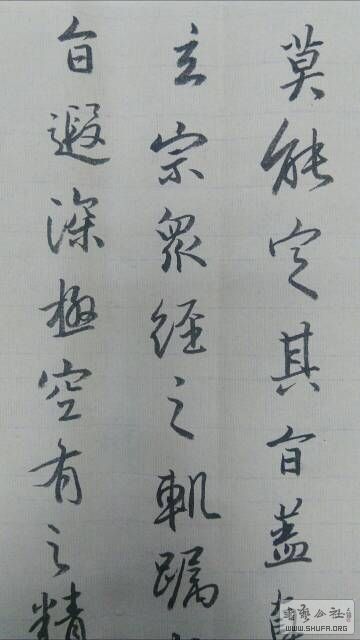 莫能定其旨蓋
玄宗眾經之軌躅
旨遐深極空有之精
書藝公社
WWW.SHUFA.ORG